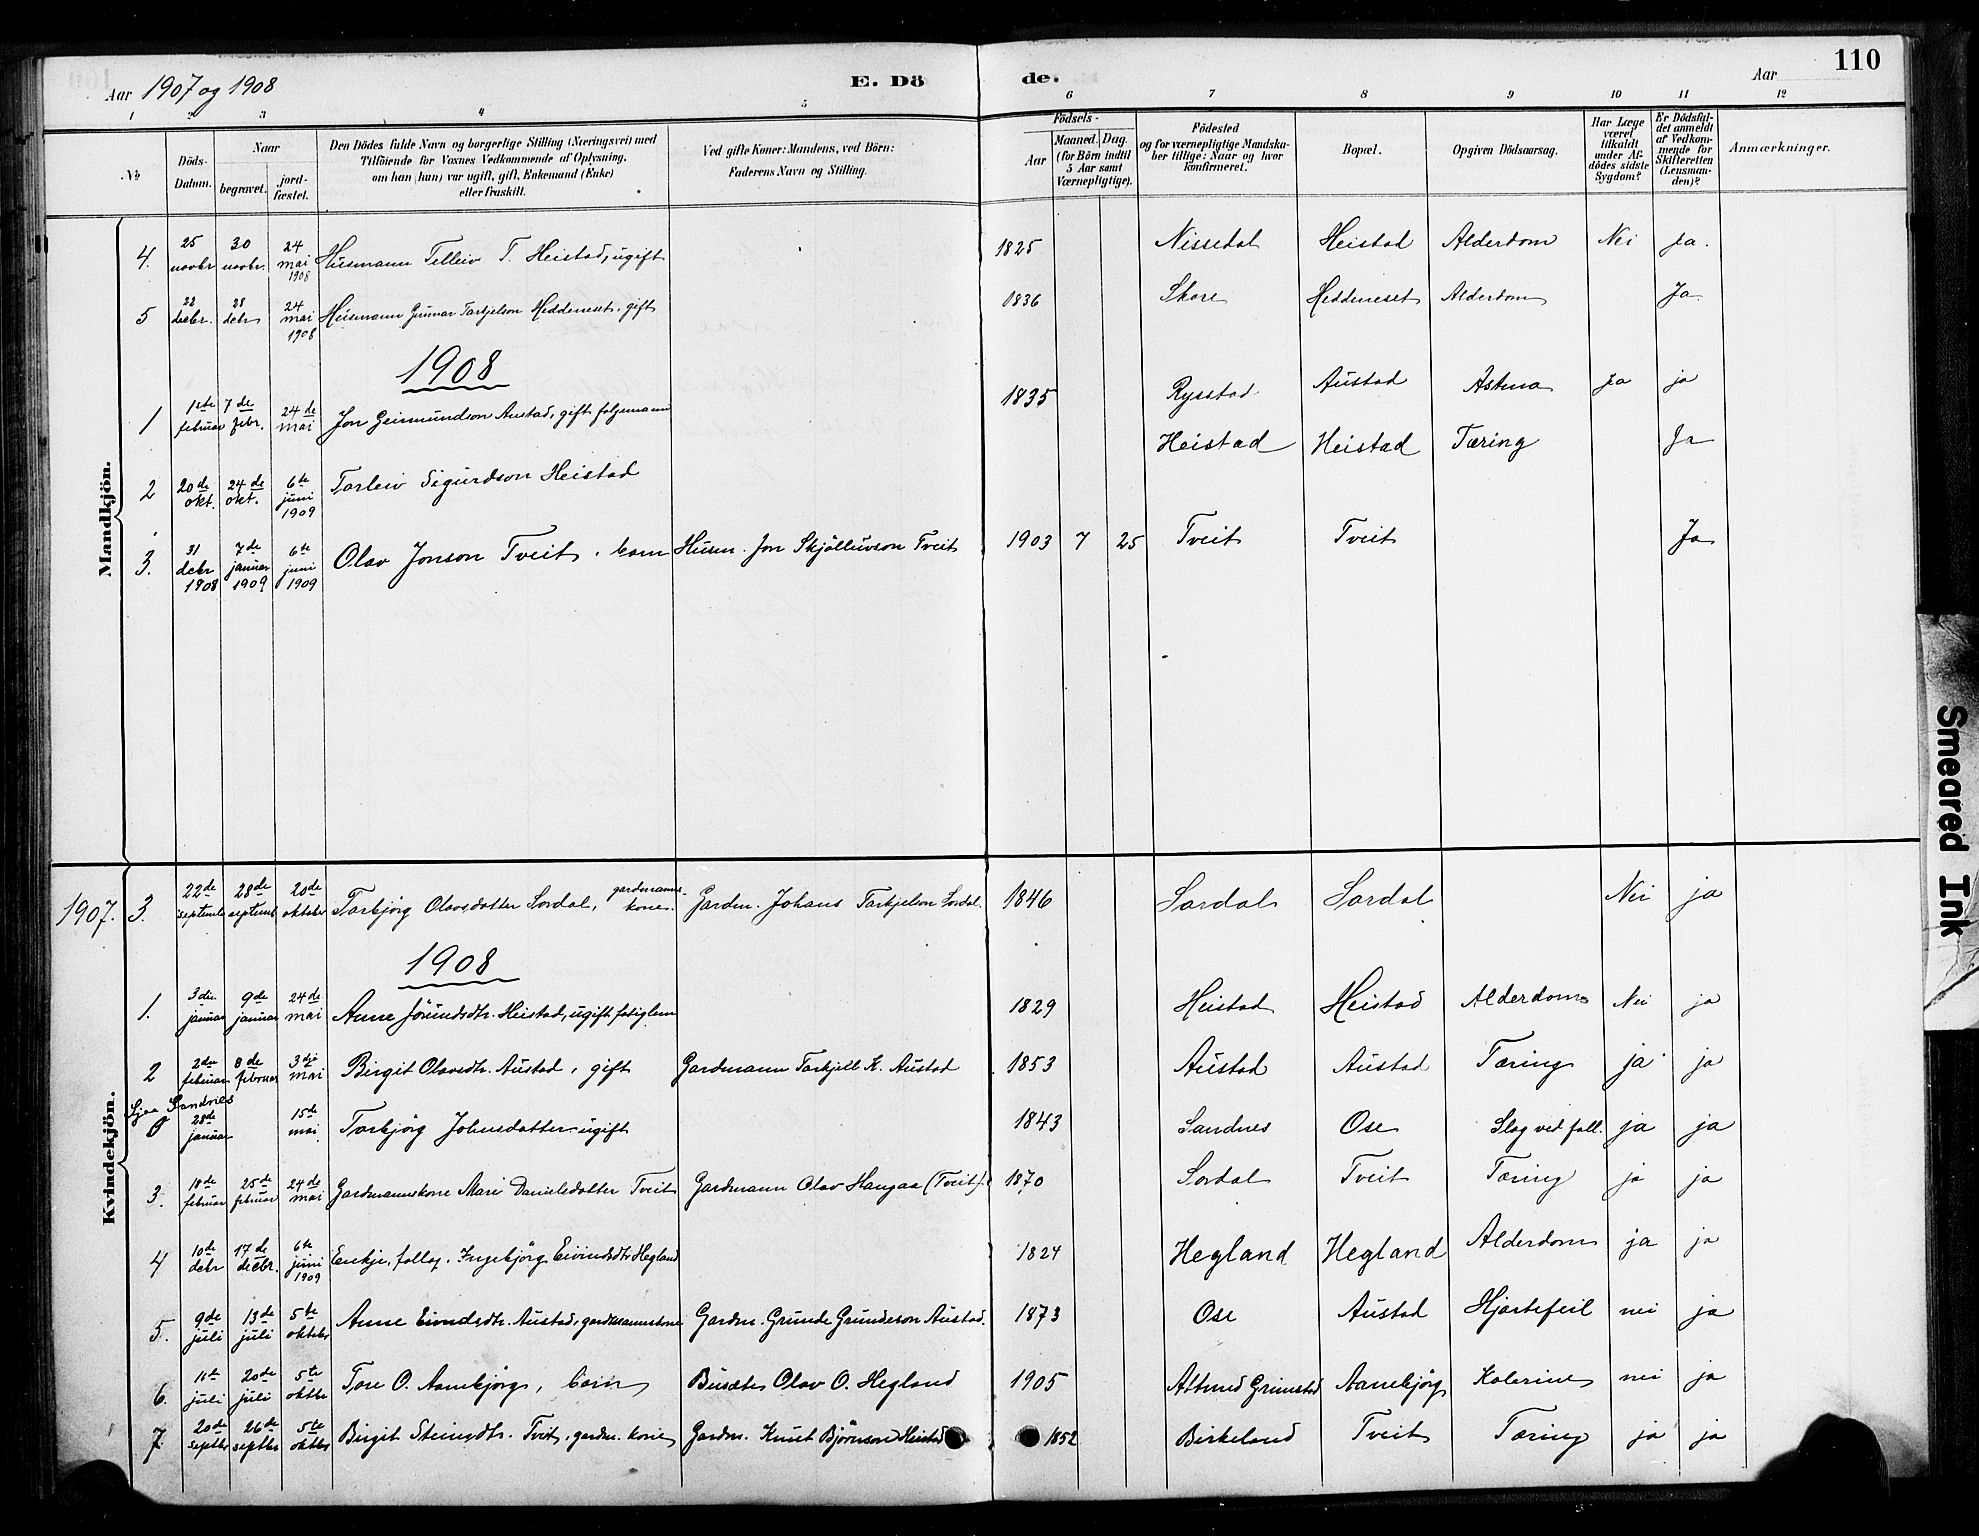 110
Aar 1907 og 1908
E. Dö
de.
Aar
1 2 3 4 5 6 7 8 9 10 11 12
№
Döds-Datum.
Naar
begravet.
jord-fæstet.
Den Dödes fulde Navn og borgerlige Stilling (Næringsvei) med
Tilföiende for Voxnes Vedkommende af Oplysning,
om han (hun) var ugift, gift, Enkemand (Enke)
eller fraskilt.
Ved gifte Koner: Mandens, ved Börn:
Faderens Navn og Stilling.
Födsels-
Aar
Maaned. Dag.
(for Börn indtil
5 Aar samt
Værnepligtige).
Födested
og for værnepligtige Mandska-
ber tillige: Naar og hvor
konfirmeret.
Bopæl.
Opgiven Dödsaarsag.
Har Læge
været
tilkaldt
under Af-
dödes sidste
Sygdom?
Er Dödsfal-
det anmeldt
af Vedkom-
mende for
Skifteretten
(Lensman-
den)?
Anmærkninger.
Mandkjön.
4. 25 novbr 30 novbr. 24 mai 1908 Husmann Telleiv T. Heistad, ugift 1825 Nissedal Heistad Alderdom Nei Ja.
5 22 decbr. 28 debr 24 mai 1908 Husmann Gunnar Tarkjelson Heddeneset, gift 1836 Heddeneset Alderdom Ja
1908
1 1ste februar 7de febr. 24de mai Jon Geirmundson Austad, gift folgemann 1835 Rysstad Austad Astma Ja ja
2 20de okt. 24de okt. 6te juni 1909 Torleiv Sigurdson Heistad Heistad Heistad Tæring Ja
3. 31 debr 1908 7de januar 1909 6te juni 1909 Olav Jonson Tveit, barn Husm. Jon Skjölluvson Tveit 1903 7 25 Tveit Tveit Ja
Kvindekjön.
1907. 3. 22de septembr 28de septemb 20de oktober Torbjörg Olavsdotter Sordal, gardmanns-kone. Gardm. Johans Tarkjelson Sordal. 1846 Sordal Sordal Nei ja
1908
1. 3die januar 9de januar 24de mai Anne Jörundsdtr. Heistad, ugift fatiglem 1829 Heistad Heistad Alderdom Nei ja
2 2den februar 8de februar 3dje mai Birgit Olavsdtr. Austad, gift Gardmann Tarkjell K. Austad 1853 Austad Austad Tæring ja ja
Sjaa Sandnes
0 28de januar 15de mai Torbjörg Johnsdotter ugift 1843 Sandnes Ose Slag ved fall. ja ja
3. 18de februar 25de februar 24de mai Gardmannskone Mari Danielsdotter Tveit Gardmann Olav Haugaa (Tveit). 1870 Sordal Tveit Tæring ja ja
4 10de debr 17de decbr. 6te juni 1909 Enkje, folgj. Ingebjörg Eivindsdtr Hegland 1824 Hegland Hegland Alderdom ja ja
5. 9de juli 13de juli 5te oktober Anne Eivindsdtr. Austad, gardmannskone Gardm. Grunde Grundeson Austad. 1873 Ose Austad Hjartefeil nei ja
6. juli 20de juli 5te oktbr Tore O. Aanebjörg, barn Busæter Olav O. Hegland 1905 Grimstad Aanebjörg Kolerine nei ja
7. 20de septbr 26de septbr 5te oktbr Birgit Steinsdtr. Tveit, gardm. kone Gardm. Knut Björnson Heistad 1852 Birkeland Tveit Tæring ja ja
Smeared Ink